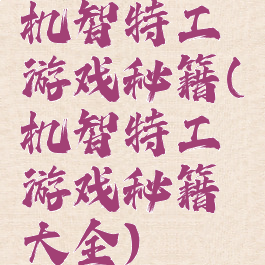 机智特工
游戏秘籍(
机智特工
游戏秘籍
大全)